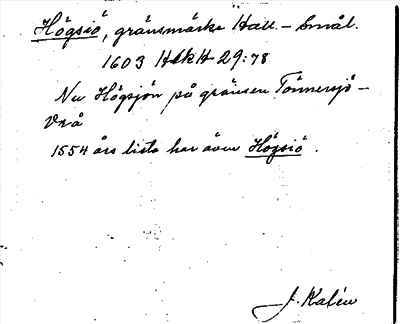 Högsiö, gränsmärke Hall. – Smål.
1603 HLkH 29:78
Nu Högsjön på gränsen Tönnersjö –
Vrå
1554 års lista har även Högsiö.
J. Kalén